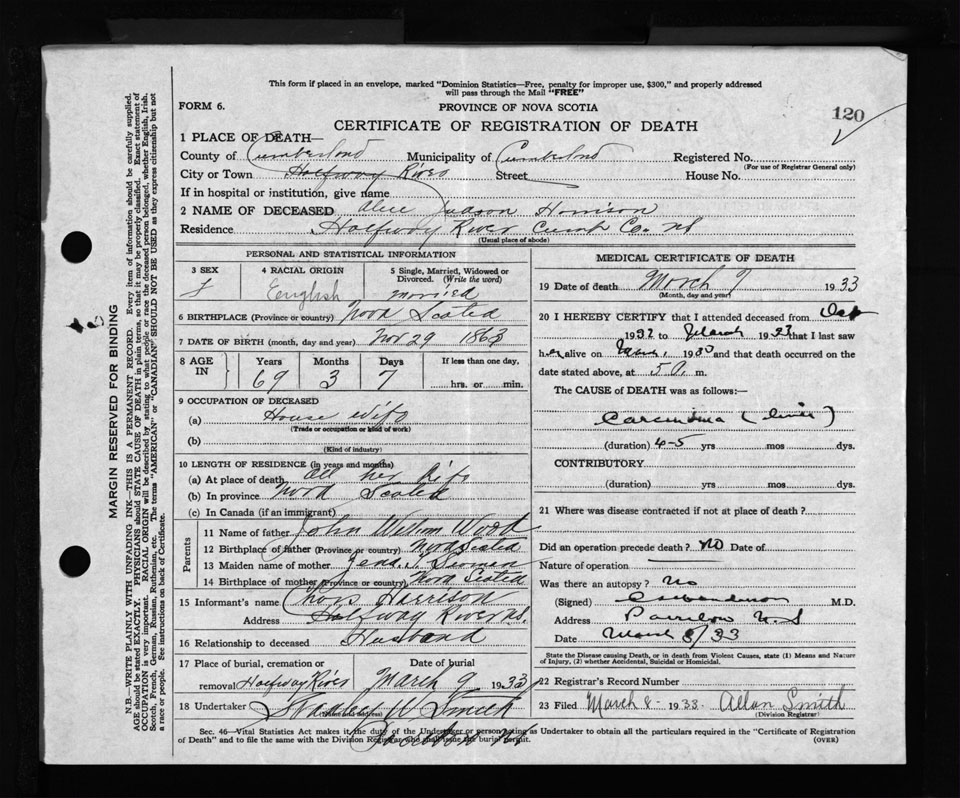 This form if placed in an envelope, marked "Dominion Statistics—Free, penalty for improper use, $300," and properly addressed
will pass through the Mail "FREE"
FORM 6.
PROVINCE OF NOVA SCOTIA
120
CERTIFICATE OF REGISTRATION OF DEATH
1 PLACE OF DEATH—
County of Cumberland Municipality of Cumberland Registered No.
(For use of Registrar General only)
City or Town Halfway River Street House No.
If in hospital or institution, give name
2 NAME OF DECEASED Alice Judson Harrison
Residence Halfway River Cumb Co. NS
(Usual place of abode)
PERSONAL AND STATISTICAL INFORMATION
3 SEX 4 RACIAL ORIGIN 5 Single, Married, Widowed or Divorced. (Write the word)
F English married
6 BIRTHPLACE (Province or country) Nova Scotia
7 DATE OF BIRTH (month, day and year) Nov 29 1863
8 AGE IN Years Months Days If less than one day,
69 3 7 hrs. or min.
9 OCCUPATION OF DECEASED
(a) House wife
(Trade or occupation or kind of work)
(b)
(Kind of industry)
10 LENGTH OF RESIDENCE (in years and months)
(a) At place of death all her life
(b) In province Nova Scotia
(c) In Canada (if an immigrant)
Parents
11 Name of father John William Wood
12 Birthplace of father (Province or country) Nova Scotia
13 Maiden name of mother
14 Birthplace of mother (Province or country) Nova Scotia
15 Informant's name Harrison
Address Halfway River NS.
16 Relationship to deceased Husband
17 Place of burial, cremation or Date of burial
removal Halfway River March 9 1933
18 Undertaker W Smith
(Name and address)
MEDICAL CERTIFICATE OF DEATH
19 Date of death March 7 1933
(Month, day and year)
20 I HEREBY CERTIFY that I attended deceased from Oct
1932 to March 1933 that I last saw
her alive on March 1930 and that death occurred on
date stated above, at 5 a. m.
The CAUSE of DEATH was as follows:—
Carcinoma (liver)
(duration) 4-5 yrs mos dys.
CONTRIBUTORY
(duration) yrs mos dys.
21 Where was disease contracted if not at place of death?
Did an operation precede death? no Date of
Nature of operation
Was there an autopsy? no
(Signed) M.D.
Address Parrsboro N.S
Date March 8/33
State the Disease causing Death, or in death from Violent Causes, state (1) Means and Nature
of Injury, (2) whether Accidental, Suicidal or Homicidal.
22 Registrar's Record Number
23 Filed March 8 1933. Allan Smith
(Division Registrar)
Sec. 46—Vital Statistics Act makes it the duty of the Undertaker or person acting as Undertaker to obtain all the particulars required in the "Certificate of Registration
of Death" and to file the same with the Division Registrar who shall issue the burial permit. (OVER)
MARGIN RESERVED FOR BINDING
N.B.—WRITE PLAINLY WITH UNFADING INK—THIS IS A PERMANENT RECORD. Every item of information should be carefully supplied.
AGE should be stated EXACTLY. PHYSICIANS should STATE CAUSE OF DEATH in plain terms, so that it may be properly classified. Exact statement of
OCCUPATION is very important. RACIAL ORIGIN will be described by stating to what people or race the deceased person belonged, whether English, Irish,
Scotch, French, German, Russian, Ruthenian, etc. The terms "AMERICAN" or "CANADIAN" SHOULD NOT BE USED as they express citizenship but not
a race or people. See instructions on back of Certificate.